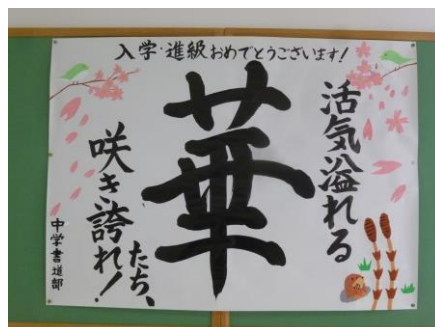 入学・進級おめでとうございます!
活気溢れる
華
たち、
咲き誇れ!
中学書道部